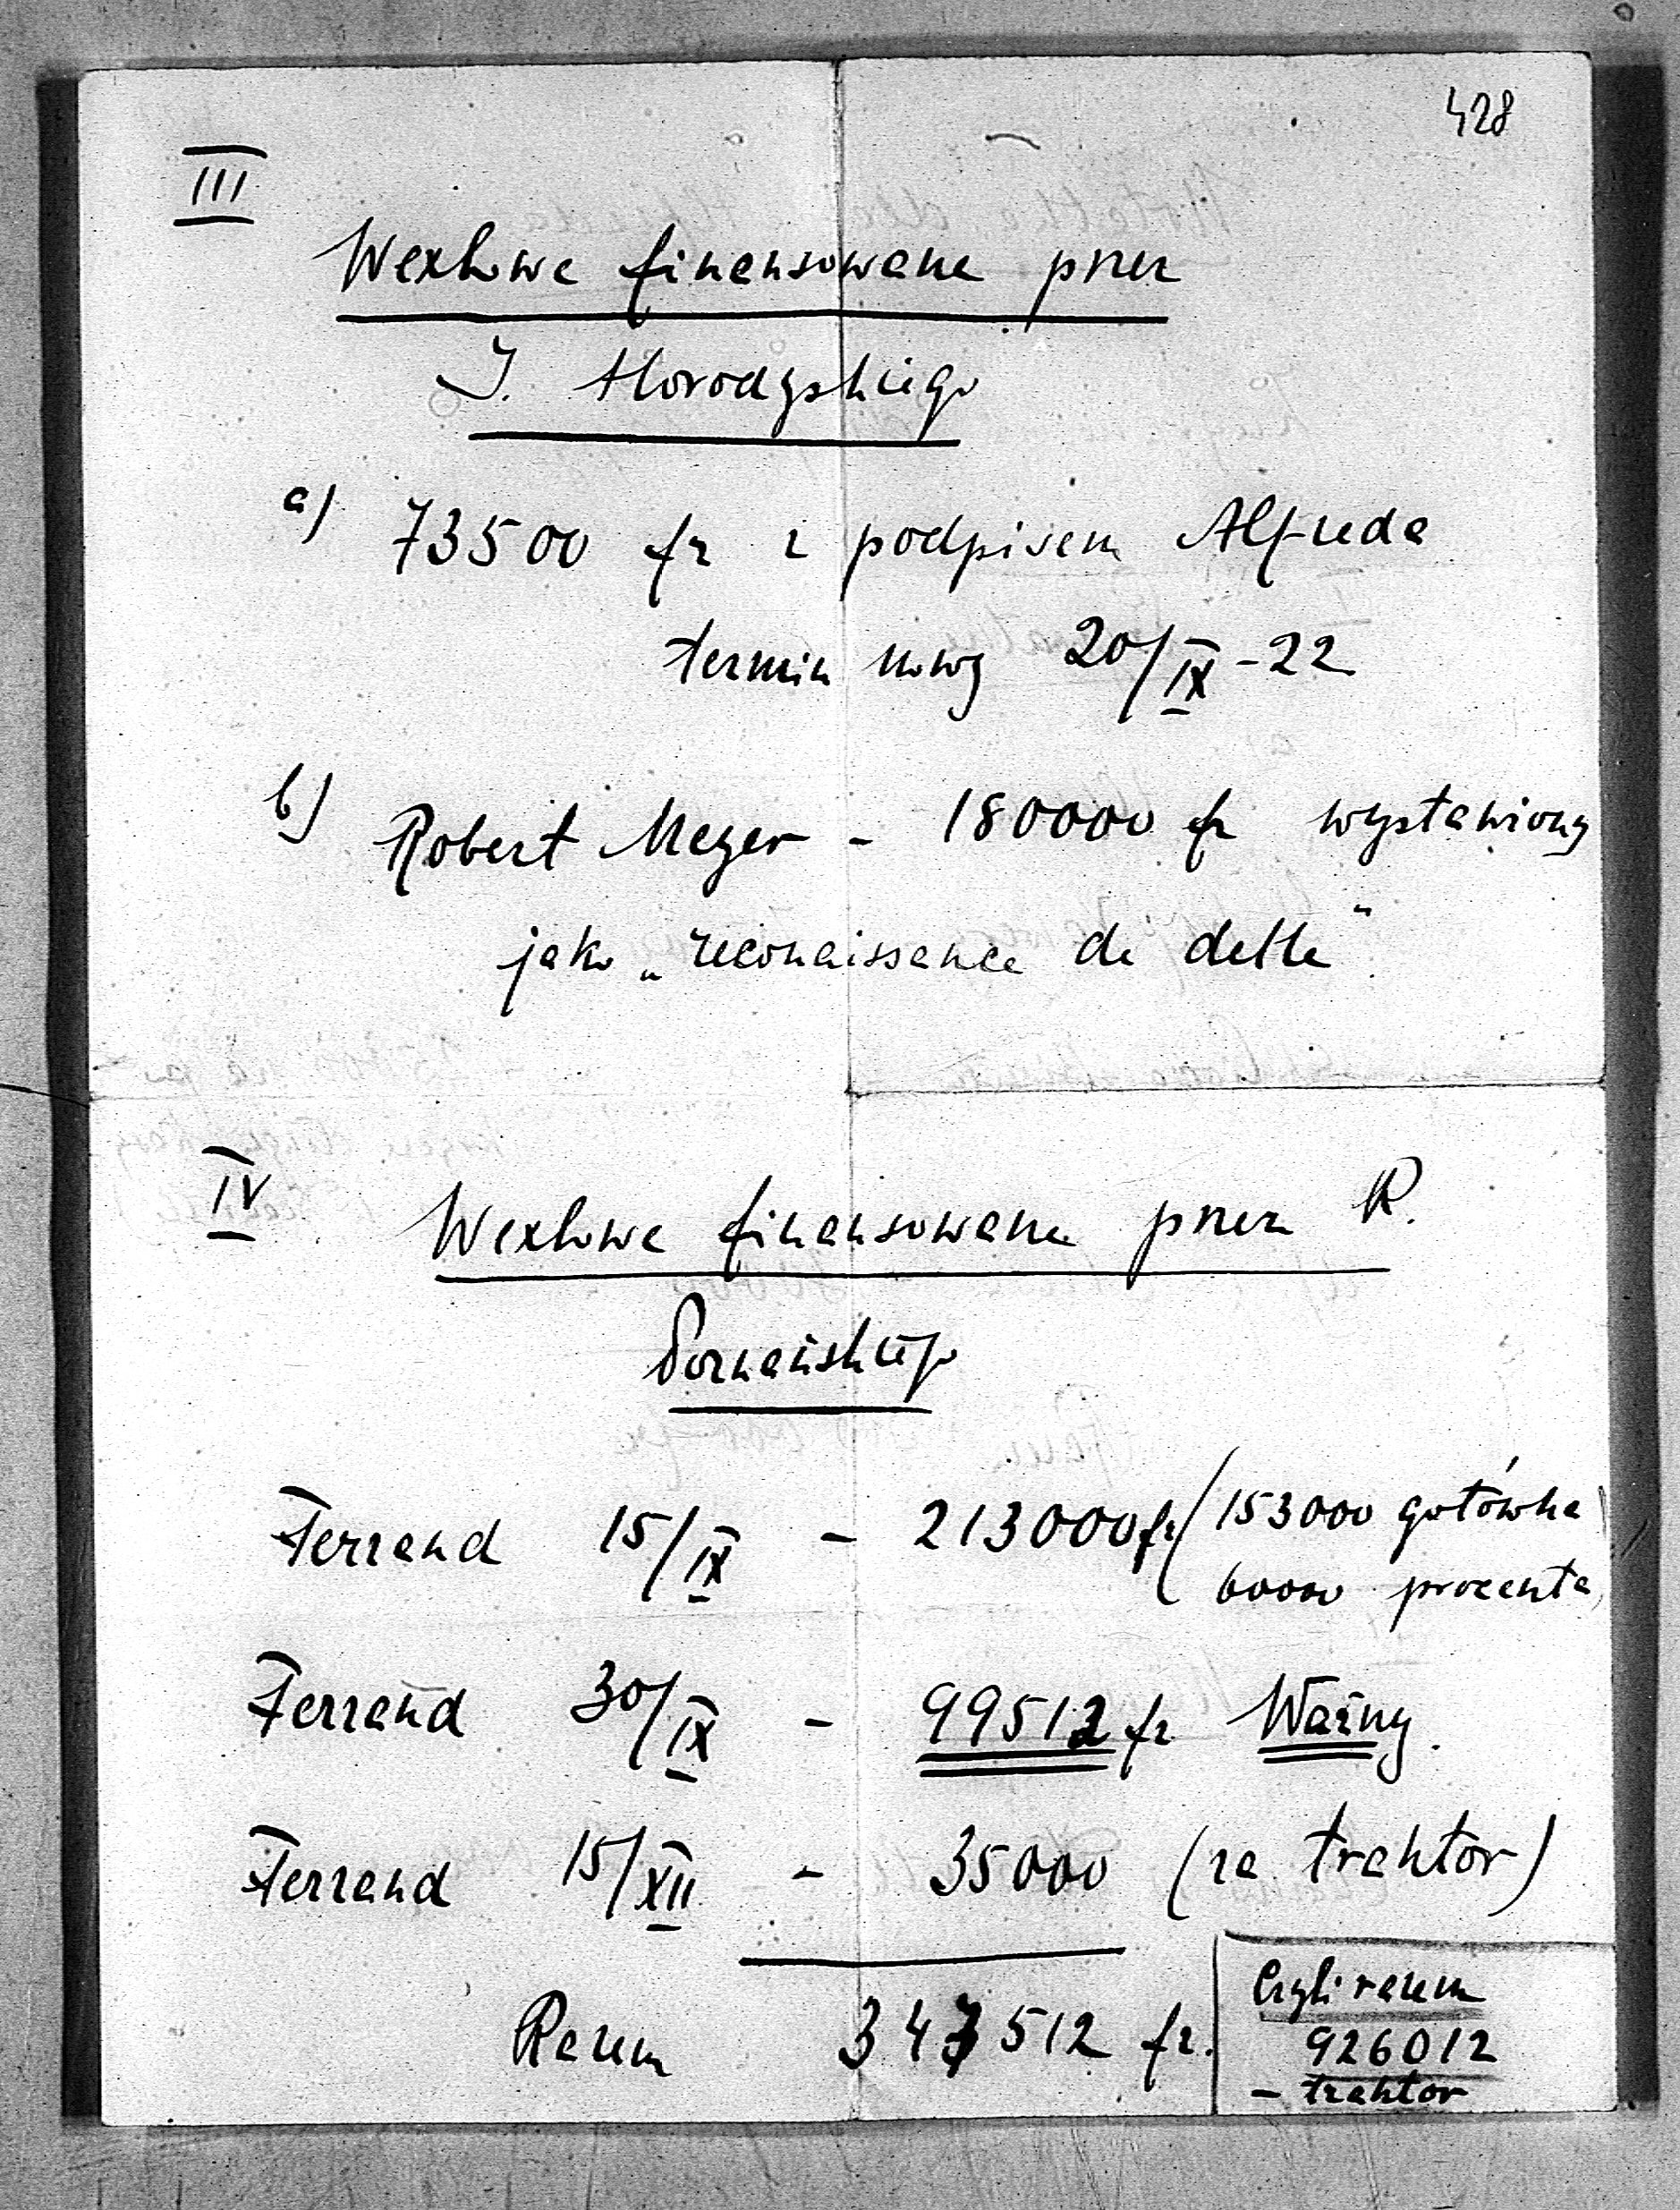 428
III
Wexlowe finansowane przez
J. Horodyskiego
a) 73500 fr z podpisem Alfreda
termin nowy 20/IX-22
b) Robert Meyer - 180000 fr wystawiony
jako „reconaissance de dette"
IV
Wexlowe finansowane przez R.
Poznańskiego
Ferrand 15/IX - 213000 fr (153000 gotówka
60000 procenta)
Ferrand 30/IX - 99512 fr Ważny.
Ferrand 15/XII - 35000 (za traktor)
Razem 347512 fr.
Czyli razem
926012
- traktor